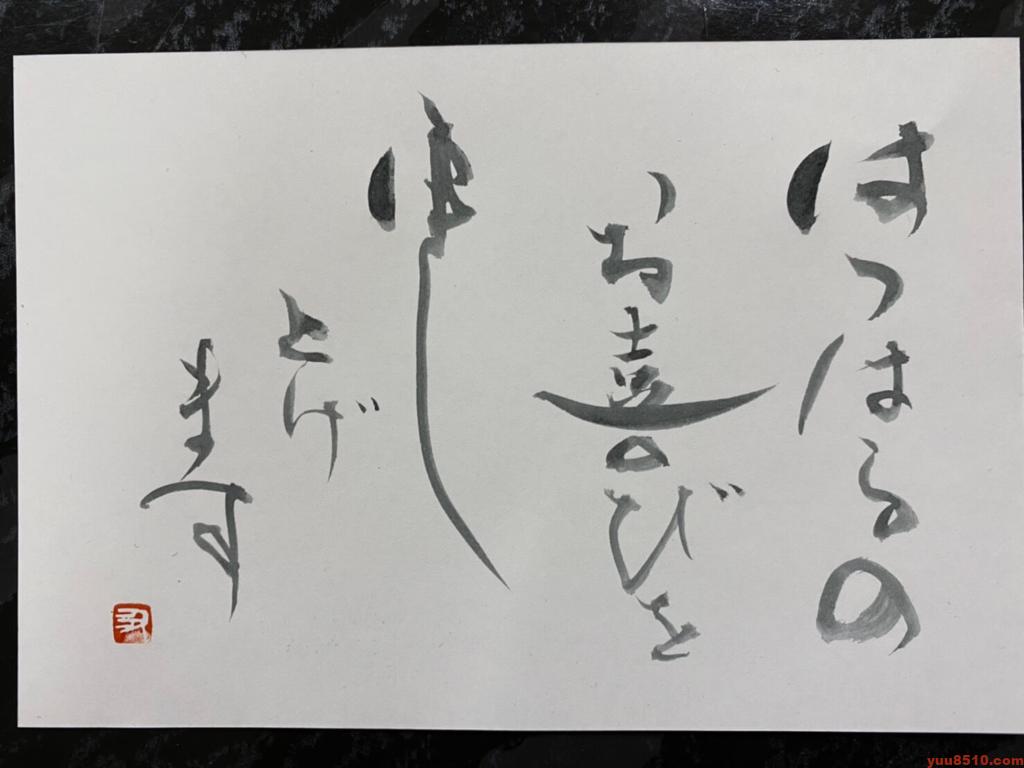 はつはるの
お喜びを
申し
上げ
ます
yuu8510.com